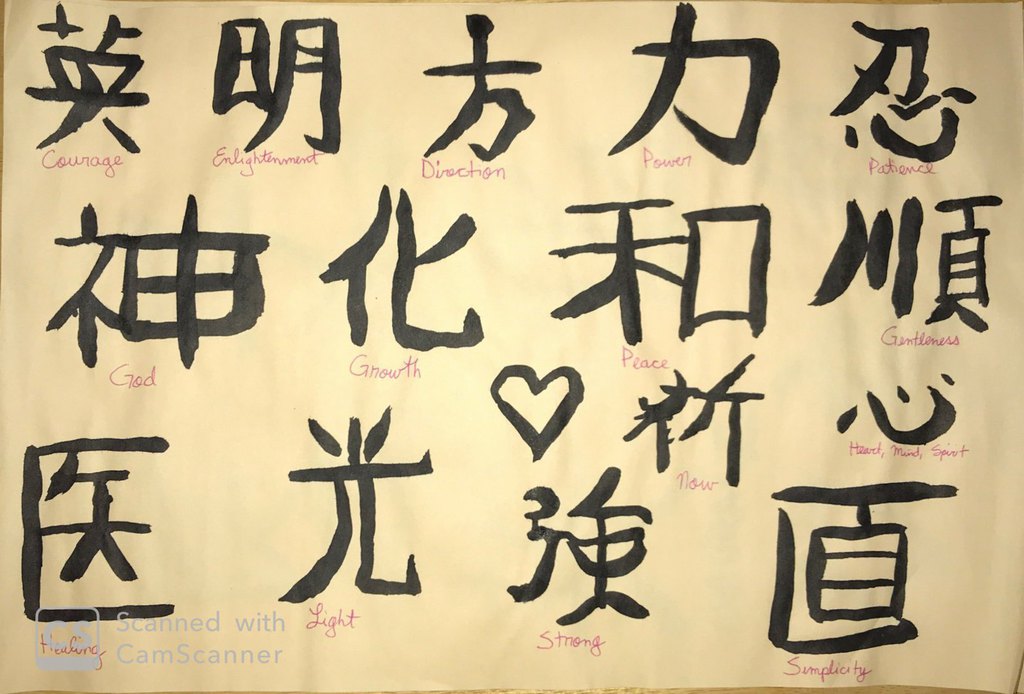 英 明 方 力 忍
Courage Enlightenment Direction Power Patience
神 化 和 順
God Growth Peace Gentleness
心
Now Heart, Mind, Spirit
医 光 強 直
Healing Light Strong Simplicity
CS Scanned with
CamScanner